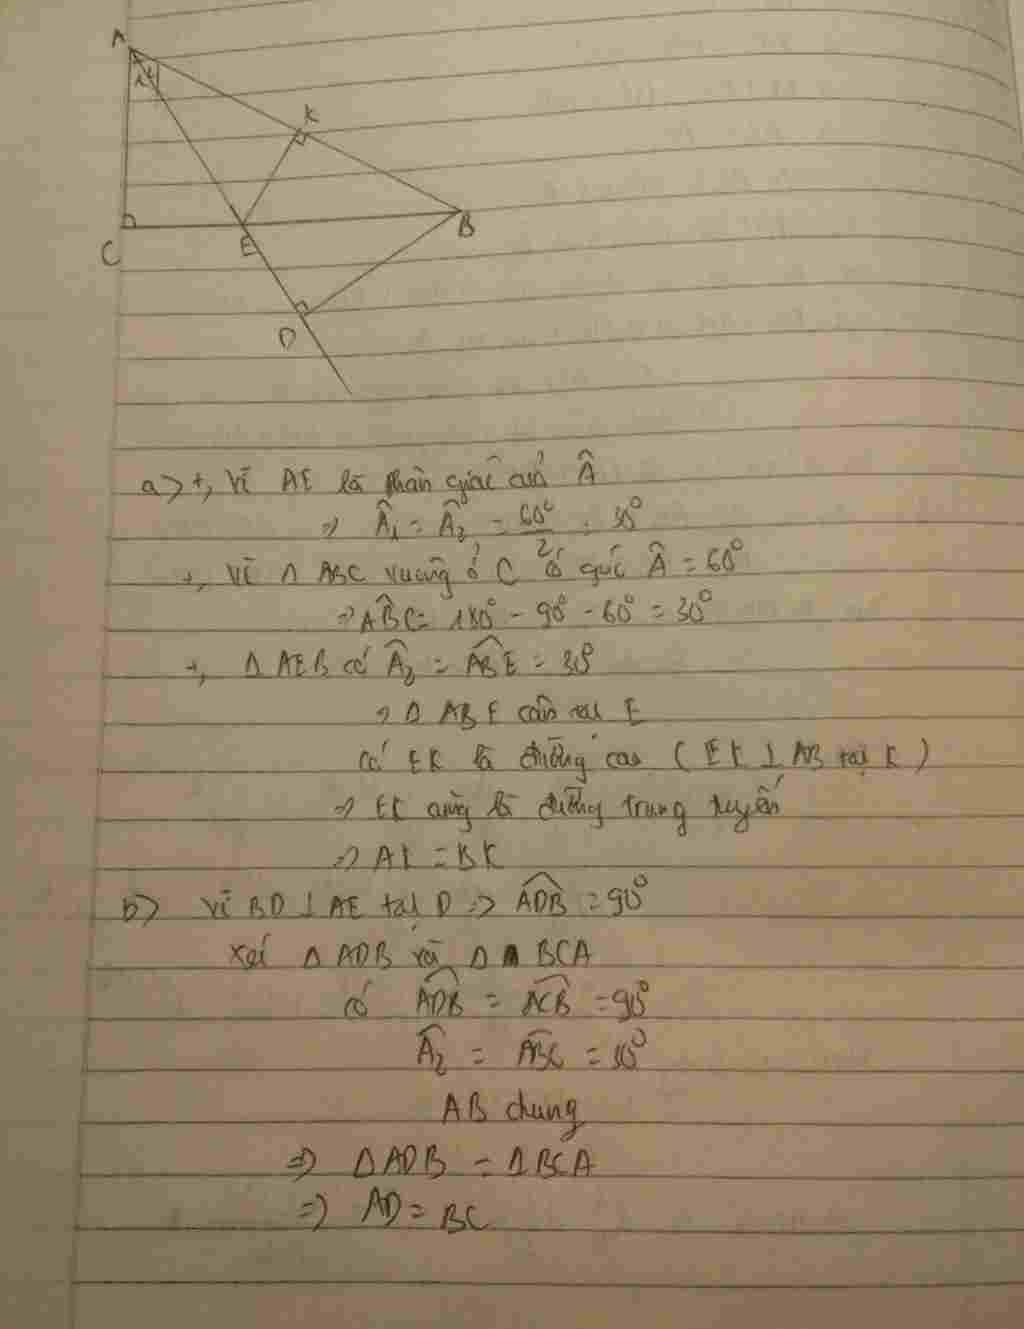 A
K
B
C
E
D
a> +, Vì AE là phân giác của Â
=> Â₁ = Â₂ = 60°/2 = 30°
+, Vì Δ ABC vuông ở C có góc Â = 60°
=> AB̂C = 180° - 90° - 60° = 30°
+, Δ AEB có Â₂ = AB̂E = 30°
=> Δ ABE cân tại E
Có EK là đường cao ( EK ⊥ AB tại K )
=> EK cũng là đường trung tuyến
=> AK = BK
b> Vì BD ⊥ AE tại D => AD̂B = 90°
Xét Δ ADB và Δ BCA
có AD̂B = AĈB = 90°
Â₂ = AB̂C = 30°
AB chung
=> ΔADB = ΔBCA
=> AD = BC